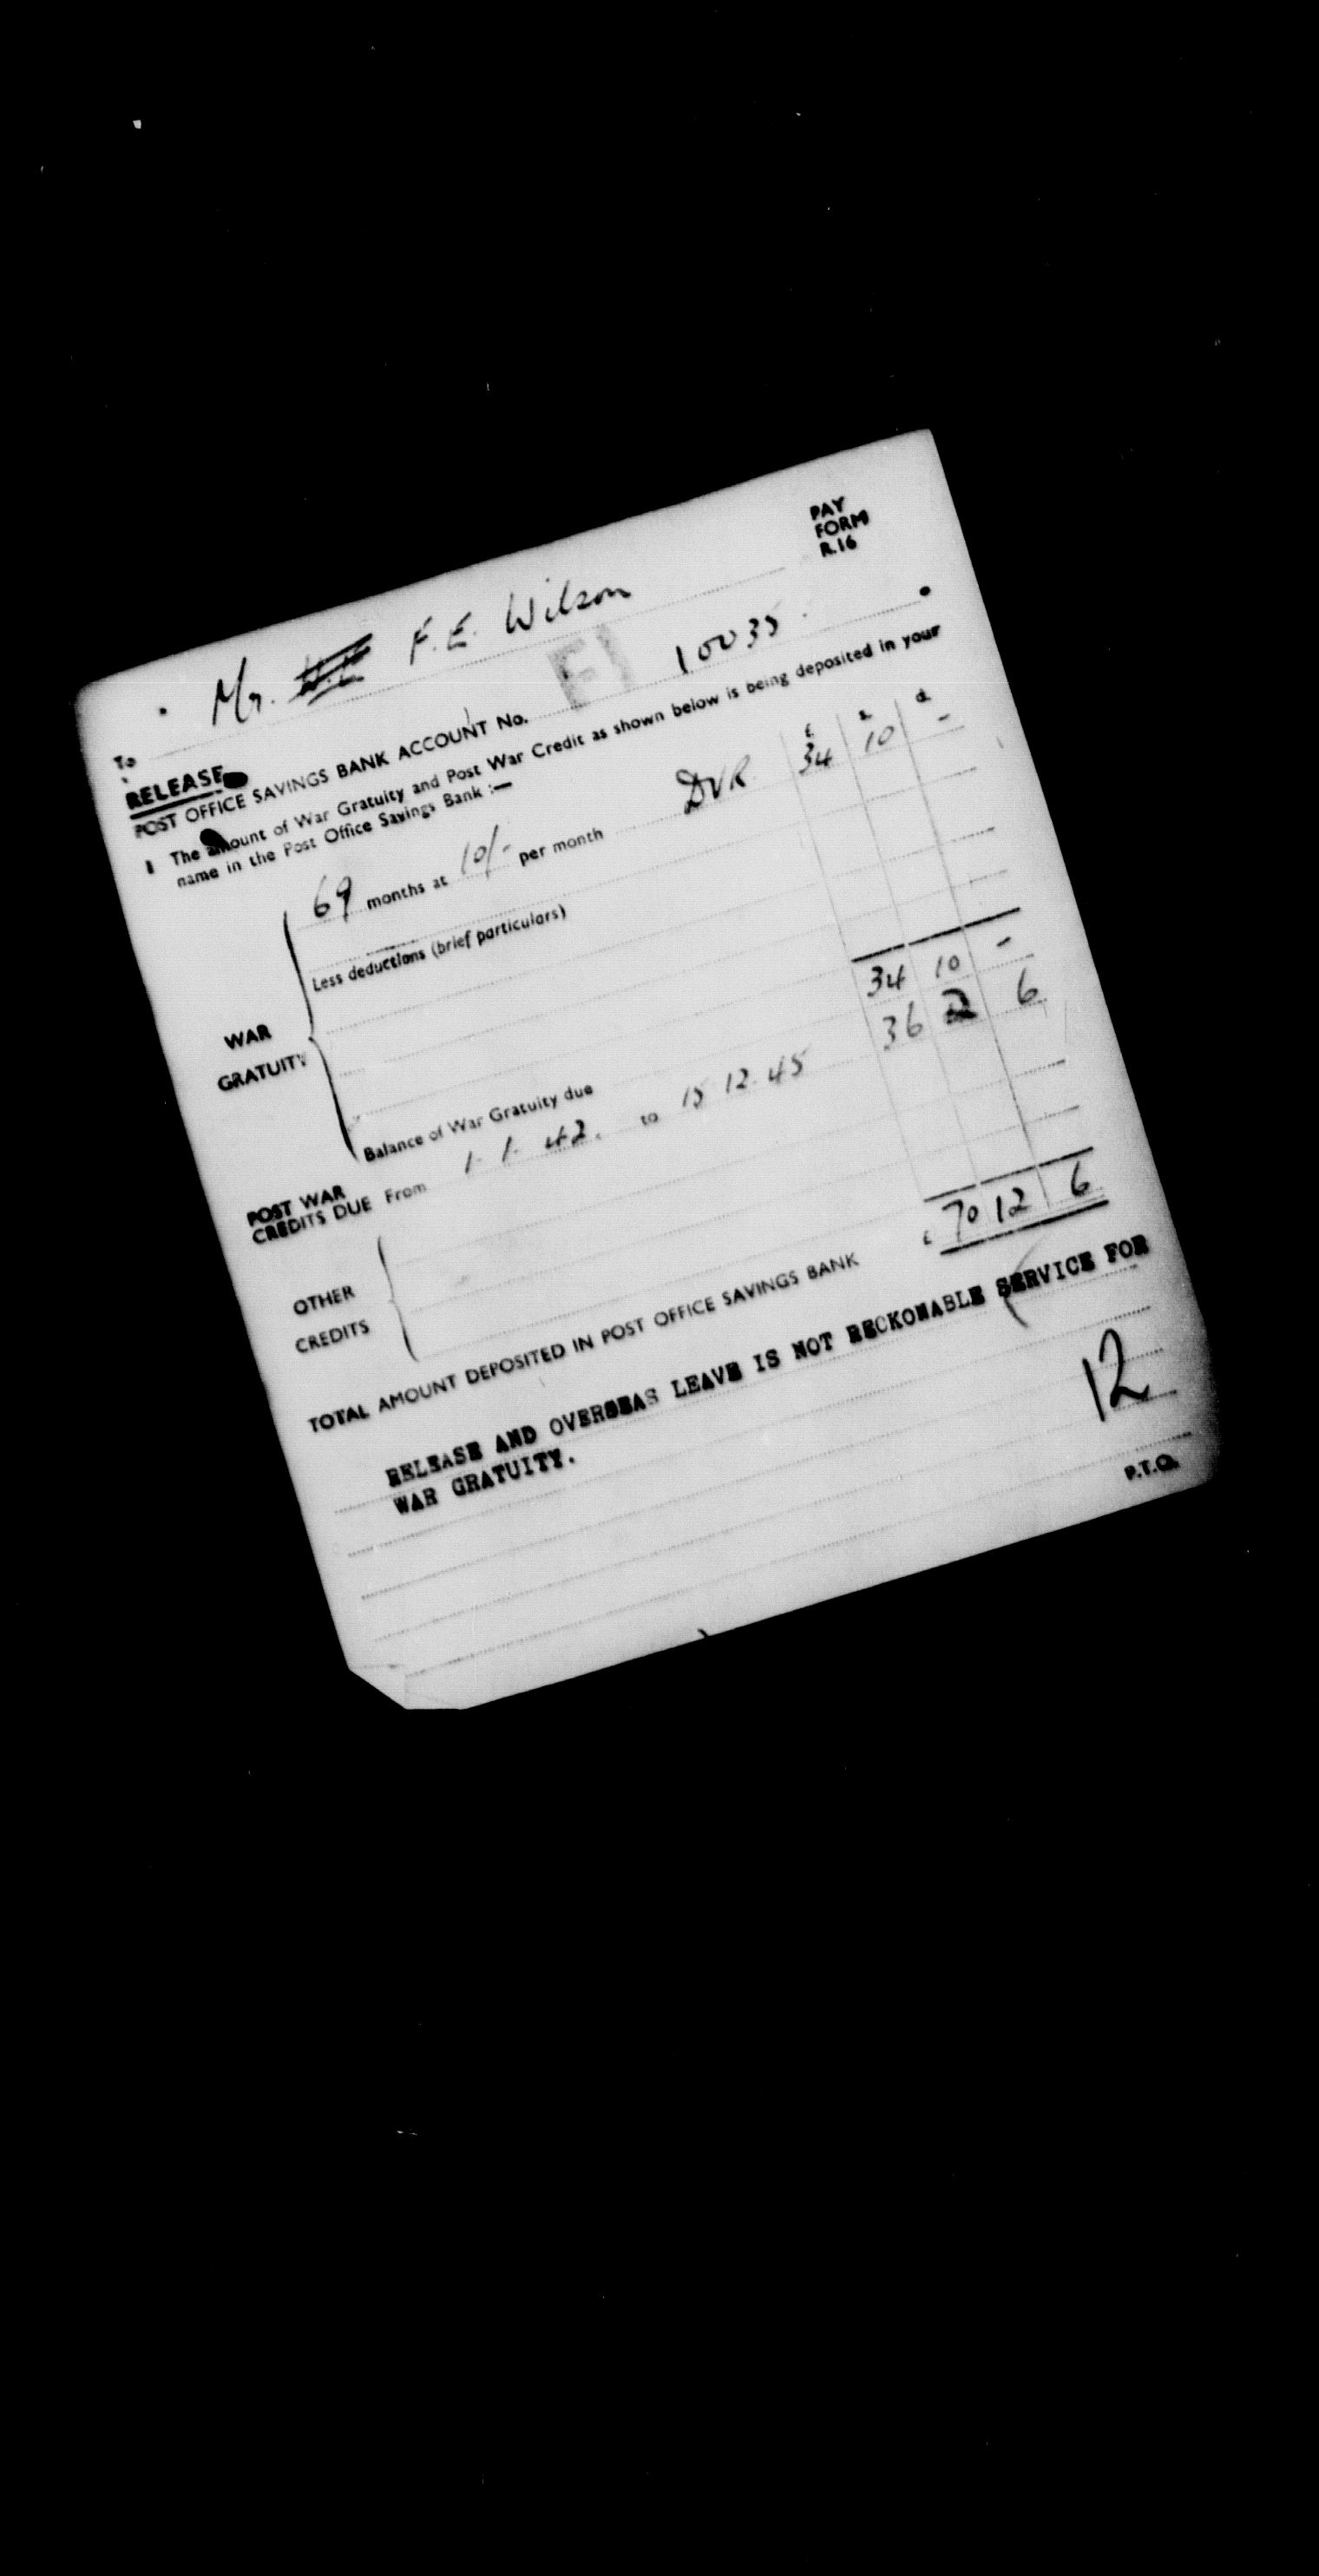 PAY
FORM
R.16
To Mr. F. E. Wilson
RELEASE
POST OFFICE SAVINGS BANK ACCOUNT No. 10035
1 The amount of War Gratuity and Post War Credit as shown below is being deposited in your
name in the Post Office Savings Bank :—
£ s. d.
69 months at 10/- per month DVR 34 10 -
Less deductions (brief particulars)
WAR
GRATUITY
Balance of War Gratuity due 34 10 -
POST WAR
CREDITS DUE From 1. 1. 42. to 15 12. 45 36 2 6
OTHER
CREDITS
TOTAL AMOUNT DEPOSITED IN POST OFFICE SAVINGS BANK £ 70 12 6
RELEASE AND OVERSEAS LEAVE IS NOT RECKONABLE SERVICE FOR
WAR GRATUITY.
12
P.T.O.